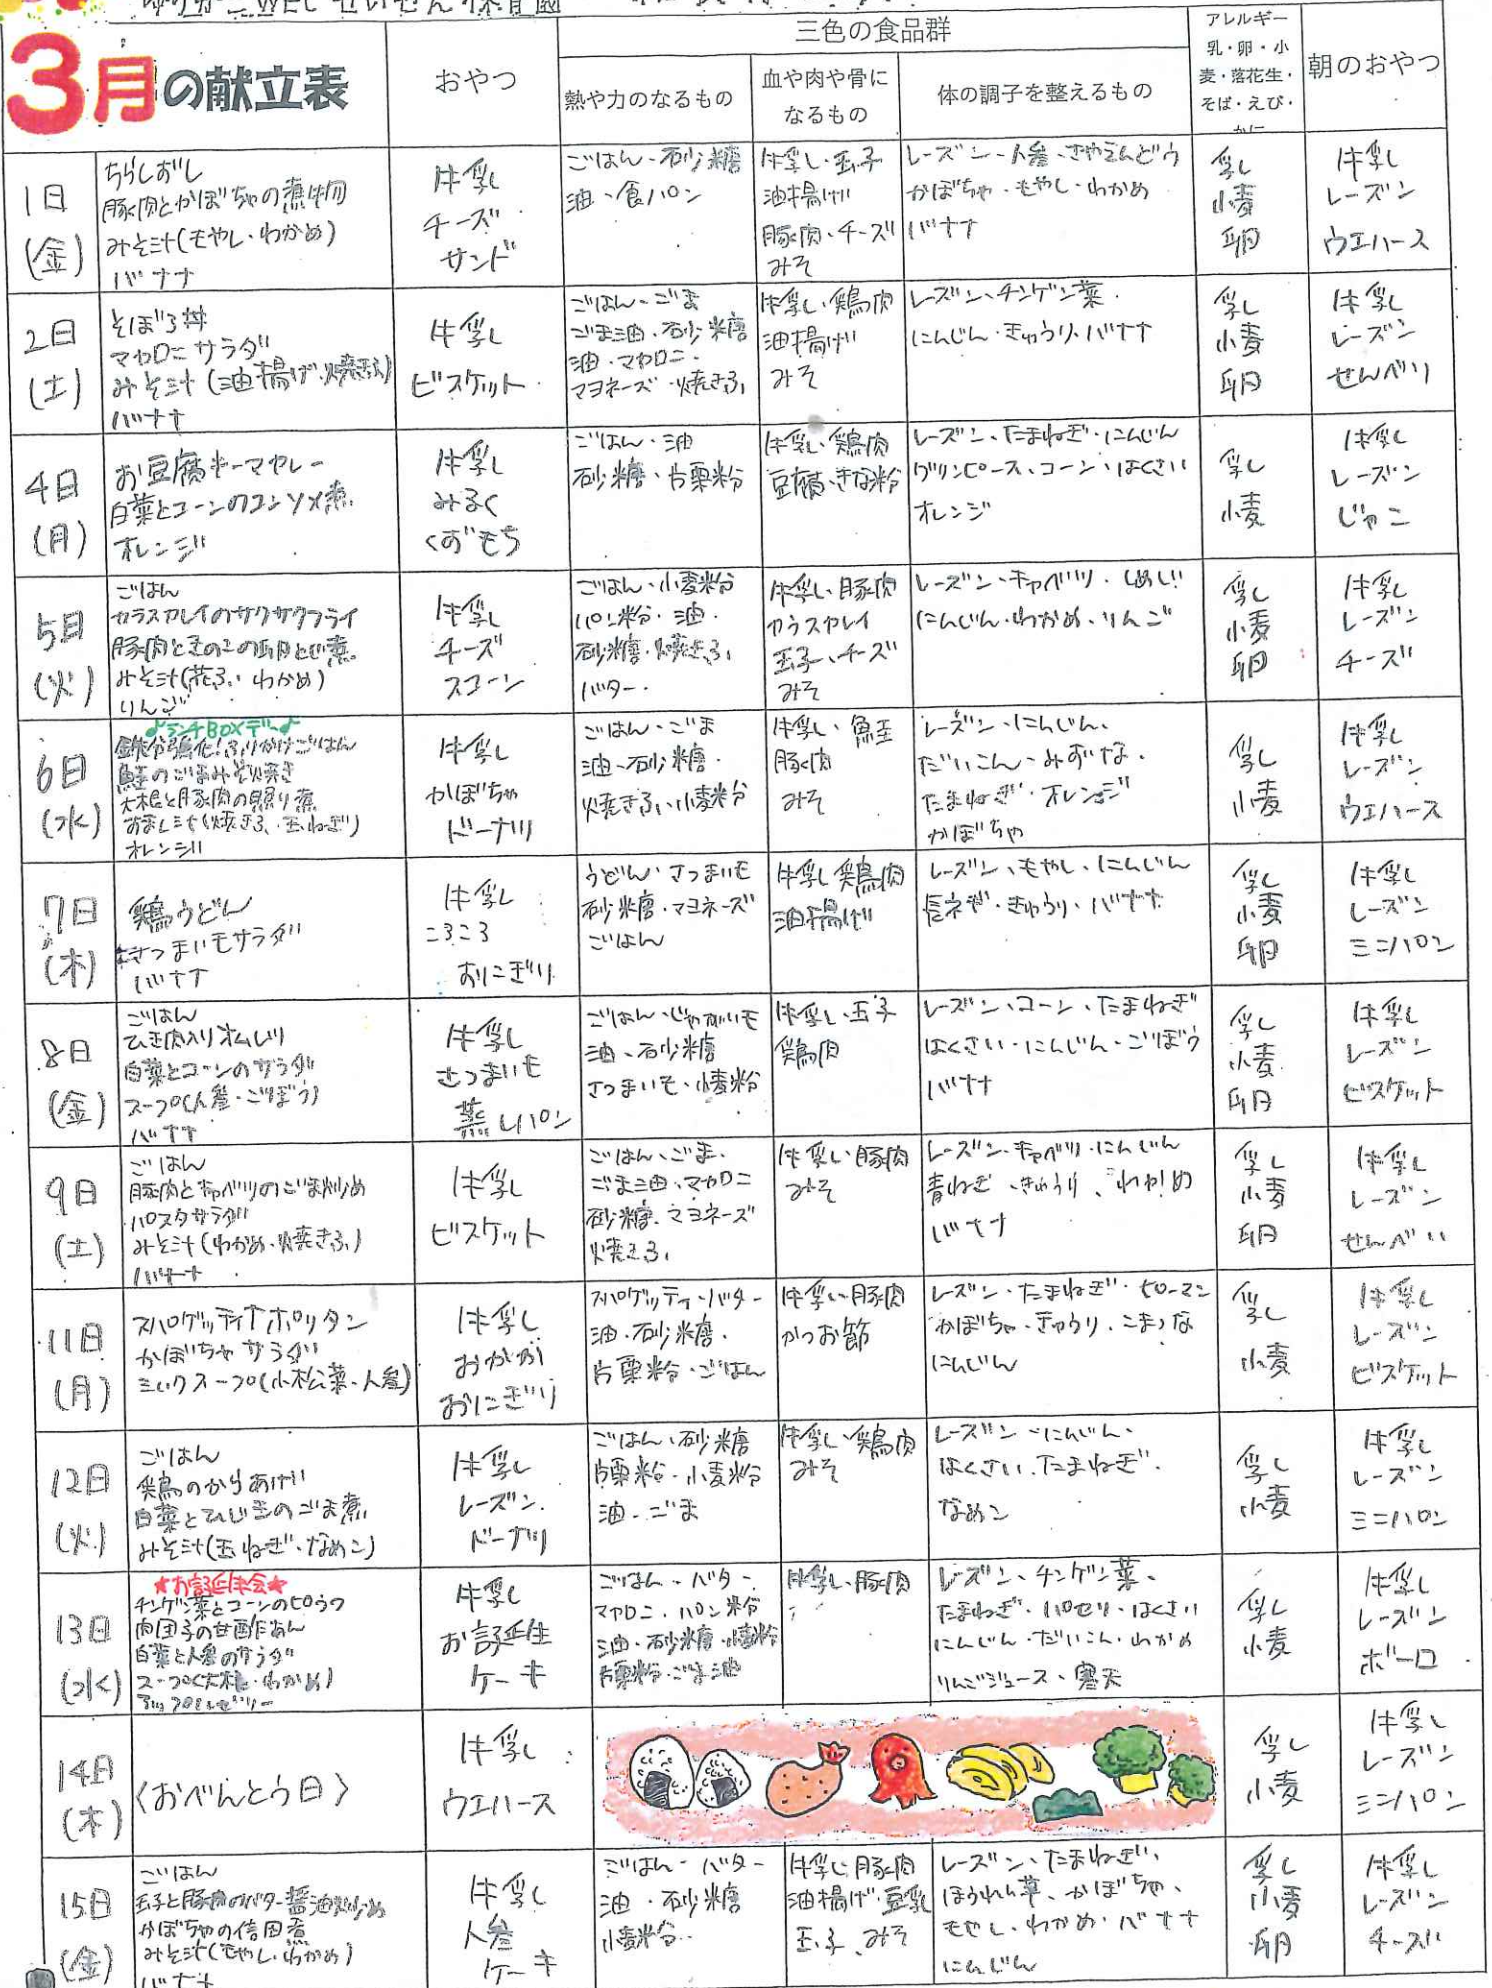 3月の献立表
おやつ
三色の食品群
熱や力のなるもの
血や肉や骨に
なるもの
体の調子を整えるもの
アレルギー
乳・卵・小
麦・落花生・
そば・えび・
かに
朝のおやつ
1日
(金)
ちらしずし
豚肉とかぼちゃの煮物
みそ汁(もやし・わかめ)
バナナ
牛乳
チーズ
サンド
ごはん・砂糖
油・食パン
牛乳・玉子
油揚げ
豚肉・チーズ
みそ
レーズン・人参・さやえんどう
かぼちゃ・もやし・わかめ
バナナ
乳
小麦
卵
牛乳
レーズン
ウエハース
2日
(土)
そぼろ丼
マカロニサラダ
みそ汁(油揚げ・焼きふ)
バナナ
牛乳
ビスケット
ごはん・ごま
ごま油・砂糖
油・マカロニ・
マヨネーズ・焼きふ
牛乳・鶏肉
油揚げ
みそ
レーズン・チンゲン菜・
にんじん・きゅうり・バナナ
乳
小麦
卵
牛乳
レーズン
せんべい
4日
(月)
お豆腐キーマカレー
白菜とコーンのコンソメ煮
オレンジ
牛乳
みるく
くずもち
ごはん・油
砂糖・片栗粉
牛乳・鶏肉
豆腐・きな粉
レーズン・たまねぎ・にんじん
グリンピース・コーン・はくさい
オレンジ
乳
小麦
牛乳
レーズン
じゃこ
5日
(火)
ごはん
カラスカレイのサクサクフライ
豚肉ときのこの卵とじ煮
みそ汁(花ふ・わかめ)
りんご
牛乳
チーズ
スコーン
ごはん・小麦粉
パン粉・油・
砂糖・焼きふ・
バター・
牛乳・豚肉
カラスカレイ
玉子・チーズ
みそ
レーズン・キャベツ・しめじ
にんじん・わかめ・りんご
乳
小麦
卵
牛乳
レーズン
チーズ
6日
(水)
♪ランチBOXデー♪
鉄分強化!ふりかけごはん
鮭のごまみそ焼き
大根と豚肉の照り煮
おすまし汁(焼きふ・玉ねぎ)
オレンジ
牛乳
かぼちゃ
ドーナツ
ごはん・ごま
油・砂糖・
焼きふ・小麦粉
牛乳・鮭
豚肉
みそ
レーズン・にんじん・
だいこん・みずな・
たまねぎ・オレンジ
かぼちゃ
乳
小麦
牛乳
レーズン
ウエハース
7日
(木)
鶏うどん
さつまいもサラダ
バナナ
牛乳
ころころ
おにぎり
うどん・さつまいも
砂糖・マヨネーズ
ごはん
牛乳・鶏肉
油揚げ
レーズン・もやし・にんじん
長ネギ・きゅうり・バナナ
乳
小麦
卵
牛乳
レーズン
ミニパン
8日
(金)
ごはん
ひき肉入りオムレツ
白菜とコーンのサラダ
スープ(人参・ごぼう)
バナナ
牛乳
さつまいも
蒸しパン
ごはん・じゃがいも
油・砂糖
さつまいも・小麦粉
牛乳・玉子
鶏肉
レーズン・コーン・たまねぎ
はくさい・にんじん・ごぼう
バナナ
乳
小麦
卵
牛乳
レーズン
ビスケット
9日
(土)
ごはん
豚肉とキャベツのごま炒め
パスタサラダ
みそ汁(わかめ・焼きふ)
バナナ
牛乳
ビスケット
ごはん・ごま・
ごま油・マカロニ
砂糖・マヨネーズ
焼きふ・
牛乳・豚肉
みそ
レーズン・キャベツ・にんじん
青ねぎ・きゅうり・わかめ
バナナ
乳
小麦
卵
牛乳
レーズン
せんべい
11日
(月)
スパゲッティナポリタン
かぼちゃサラダ
ミルクスープ(小松菜・人参)
牛乳
おかか
おにぎり
スパゲッティ・バター
油・砂糖・
片栗粉・ごはん
牛乳・豚肉
かつお節
レーズン・たまねぎ・ピーマン
かぼちゃ・きゅうり・こまつな
にんじん
乳
小麦
牛乳
レーズン
ビスケット
12日
(火)
ごはん
鶏のからあげ
白菜とひじきのごま煮
みそ汁(玉ねぎ・なめこ)
牛乳
レーズン
ドーナツ
ごはん・砂糖
片栗粉・小麦粉
油・ごま
牛乳・鶏肉
みそ
レーズン・にんじん・
はくさい・たまねぎ・
なめこ
乳
小麦
牛乳
レーズン
ミニパン
13日
(水)
★お誕生会★
チンゲン菜とコーンのピラフ
肉団子の甘酢あん
白菜と人参のサラダ
スープ(大根・わかめ)
アップルゼリー
牛乳
お誕生
ケーキ
ごはん・バター
マカロニ・パン粉
油・砂糖・小麦粉
片栗粉・ごま油
牛乳・豚肉
レーズン・チンゲン菜・
たまねぎ・パセリ・はくさい
にんじん・だいこん・わかめ
りんごジュース・寒天
乳
小麦
牛乳
レーズン
ボーロ
14日
(木)
〈おべんとう日〉
牛乳
ウエハース
乳
小麦
牛乳
レーズン
ミニパン
15日
(金)
ごはん
玉子と豚肉のバター醤油炒め
かぼちゃの信田煮
みそ汁(もやし・わかめ)
バナナ
牛乳
人参
ケーキ
ごはん・バター
油・砂糖
小麦粉
牛乳・豚肉
油揚げ・豆乳
玉子・みそ
レーズン・たまねぎ・
ほうれん草・かぼちゃ・
もやし・わかめ・バナナ
にんじん
乳
小麦
卵
牛乳
レーズン
チーズ